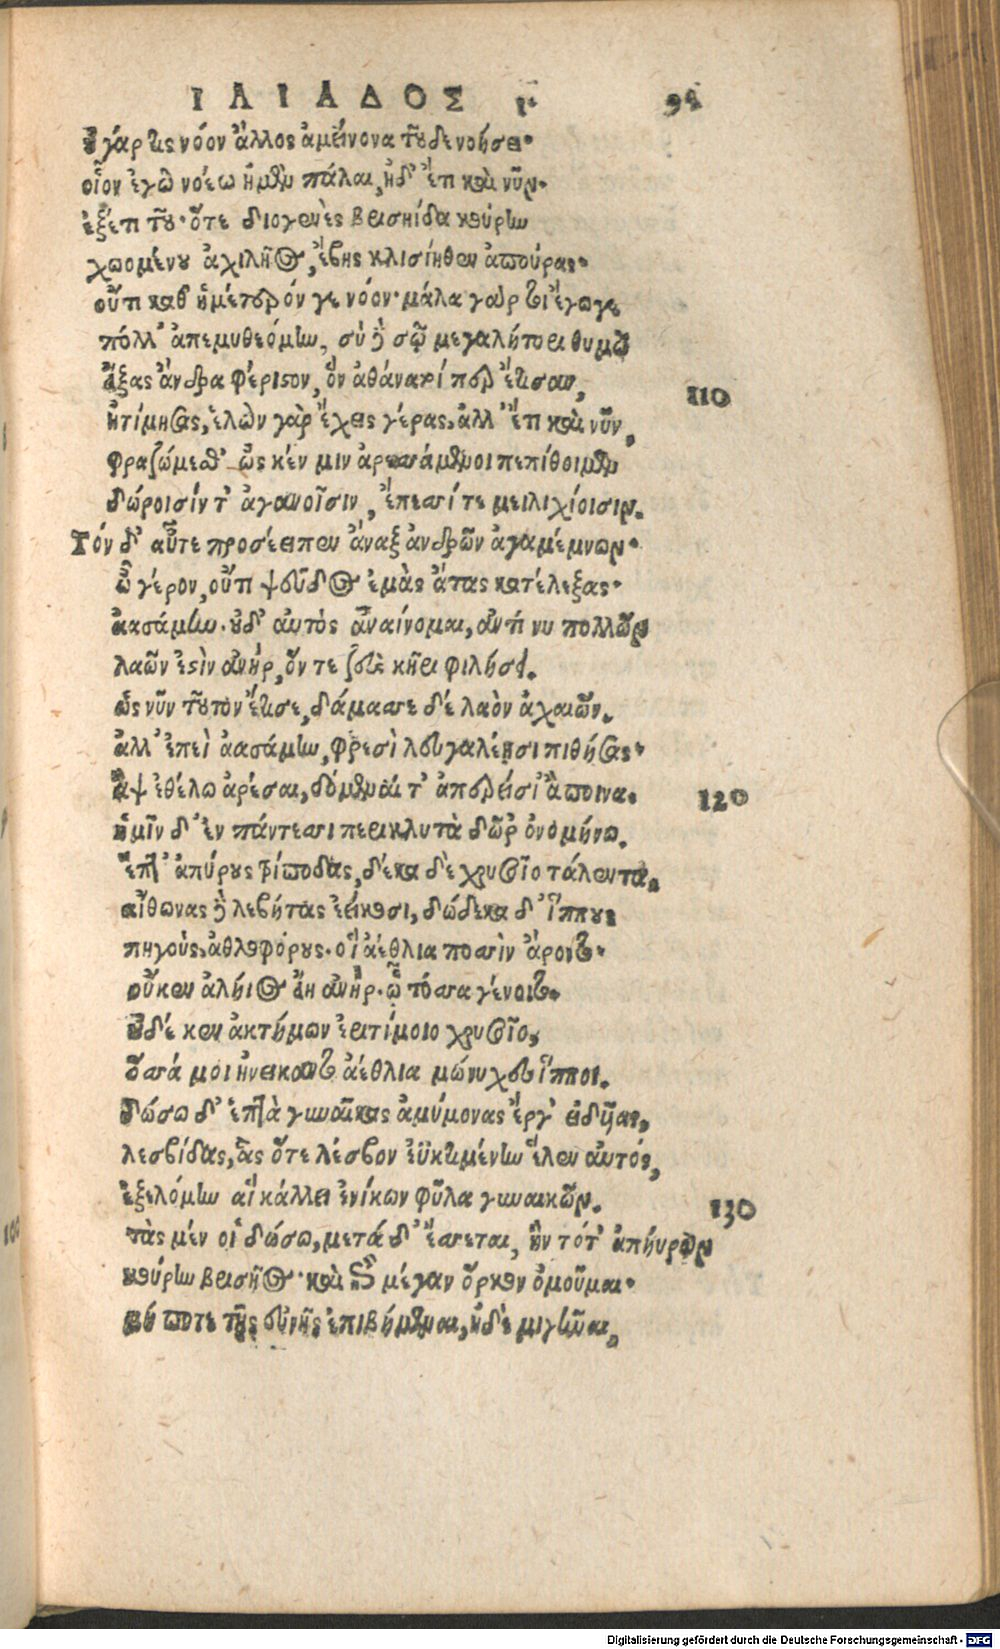 ΙΛΙΑΔΟΣ Ι·
οὐ γάρ τις νόον ἄλλος ἀμείνονα τοῦδε νοήσει·
οἷον ἐγὼ νοέω ἠμὲν πάλαι, ἠδ' ἔτι καὶ νῦν·
ἐξέτι τοῦ· ὅτε διογενὲς βρισηίδα κούρην
χωομένου ἀχιλῆος, ἔβης κλισίηθεν ἀπούρας·
οὔτι καθ' ἡμέτερόν γε νόον· μάλα γάρ τοι ἔγωγε
πόλλ' ἀπεμυθεόμην, σὺ δὲ σῷ μεγαλήτορι θυμῷ
εἴξας ἄνδρα φέριστον, ὃν ἀθάνατοί περ ἔτισαν,
110
ἠτίμησας, ἑλὼν γὰρ ἔχεις γέρας, ἀλλ' ἔτι καὶ νῦν,
φραζώμεσθ' ὥς κέν μιν ἀρεσσάμενοι πεπίθοιμεν
δώροισίν τ' ἀγανοῖσιν, ἔπεσσί τε μειλιχίοισιν.
Τόν δ' αὖτε προσέειπεν ἄναξ ἀνδρῶν ἀγαμέμνων·
ὦ γέρον, οὔτι ψεῦδος ἐμὰς ἄτας κατέλεξας·
ἀασάμην· οὐδ' αὐτὸς ἀναίνομαι, ἀντί νυ πολλῶν
λαῶν ἐστὶν ἀνήρ, ὅν τε ζεὺς κῆρι φιλήσῃ.
ὡς νῦν τοῦτον ἔτισε, δάμασσε δέ λαὸν ἀχαιῶν.
ἀλλ' ἐπεὶ ἀασάμην, φρεσὶ λευγαλέῃσι πιθήσας·
ἂψ ἐθέλω ἀρέσαι, δόμεναί τ' ἀπερείσι' ἄποινα.
120
ὑμῖν δ' ἐν πάντεσσι περικλυτὰ δῶρ' ὀνομήνω.
ἕπτ' ἀπύρους τρίποδας, δέκα δὲ χρυσοῖο τάλεντα,
αἴθωνας δὲ λεβήτας ἐείκοσι, δώδεκα δ' ἵππους
πηγούς, ἀθλοφόρους· οἳ ἀέθλια ποσσὶν ἄροντο·
οὔ κεν ἀλήιος εἴη ἀνήρ· ᾧ τόσσα γένοιτο·
οὐδέ κεν ἀκτήμων ἐριτίμοιο χρυσοῖο,
ὅσσά μοι ἠνείκοντο ἀέθλια μώνυχες ἵπποι.
δώσω δ' ἑπτὰ γυναῖκας ἀμύμονας ἔργ' εἰδυῖας,
λεσβίδας, ἃς ὅτε λέσβον ἐϋκτιμένην ἕλεν αὐτός,
ἐξελόμην αἳ κάλλει ἐνίκων φῦλα γυναικῶν.
130
τὰς μέν οἱ δώσω, μετά δ' ἔσσεται, ἣν τότ' ἀπηύρων
κούρην βρισῆος· καὶ ἐπὶ μέγαν ὅρκον ὀμοῦμαι·
μή ποτε τῆς εὐνῆς ἐπιβήμεναι, ἠδὲ μιγῆναι,
Digitalisierung gefördert durch die Deutsche Forschungsgemeinschaft - DFG